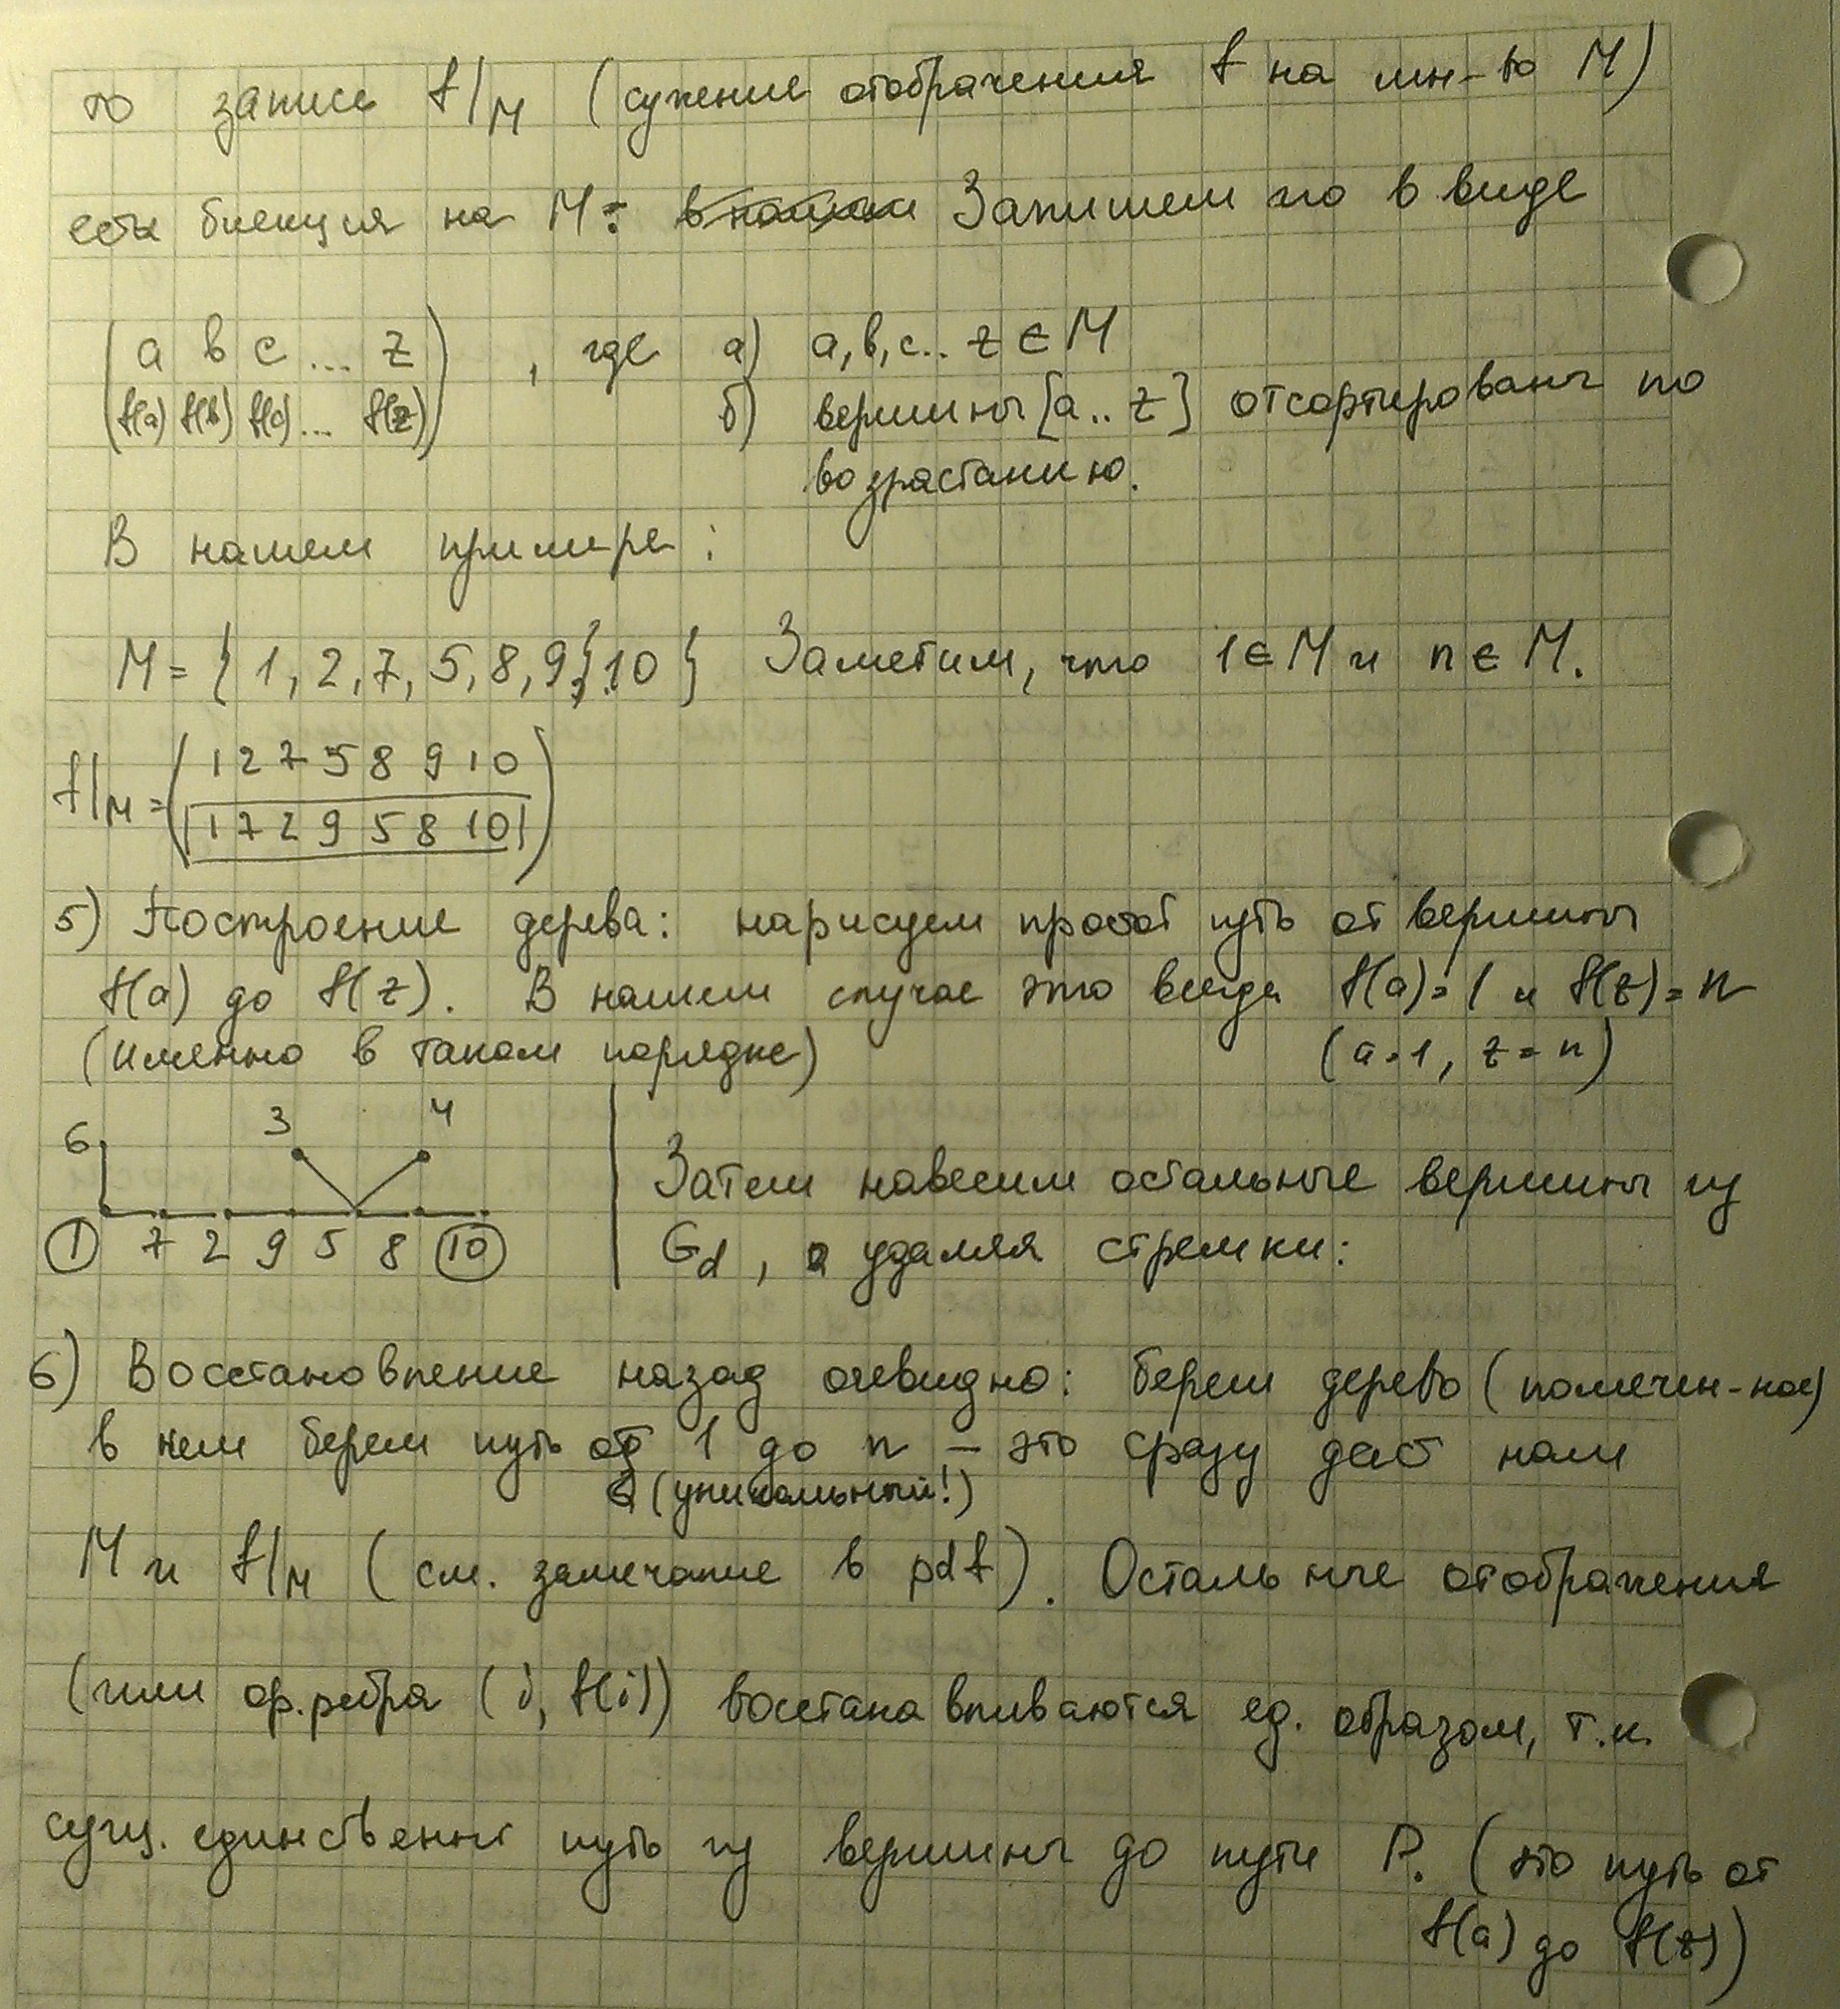 то запись f|M (сужение отображения f на мн-во M)
есть биекция на M. Запишем его в виде
(a b c ... z) , где а) a, b, c.. z ∈ M
(f(a) f(b) f(c) ... f(z)) б) вершины [a .. z] отсортированы по
возрастанию.
В нашем примере :
M = { 1, 2, 7, 5, 8, 9, 10 } Заметим, что 1 ∈ M и n ∈ M.
f|M = ( 1 2 7 5 8 9 10 )
( 1 7 2 9 5 8 10 )
5) Построение дерева: нарисуем простой путь от вершины
f(a) до f(z). В нашем случае это всегда f(a) = 1 и f(z) = n
(именно в таком порядке) (a = 1, z = n)
6 3 4
Затем навесим остальные вершины из
1 7 2 9 5 8 10 Gd, удаляя стрелки:
6) Восстановление назад очевидно: берем дерево (помечен-ное)
в нем берем путь от 1 до n – это сразу даст нам
(уникальный!)
M и f|M (см. замечание в pdf). Остальные отображения
(или ор. ребра (i, f(i)) восстанавливаются ед. образом, т.к.
сущ. единственный путь из вершины до пути P. (это путь от
f(a) до f(z))